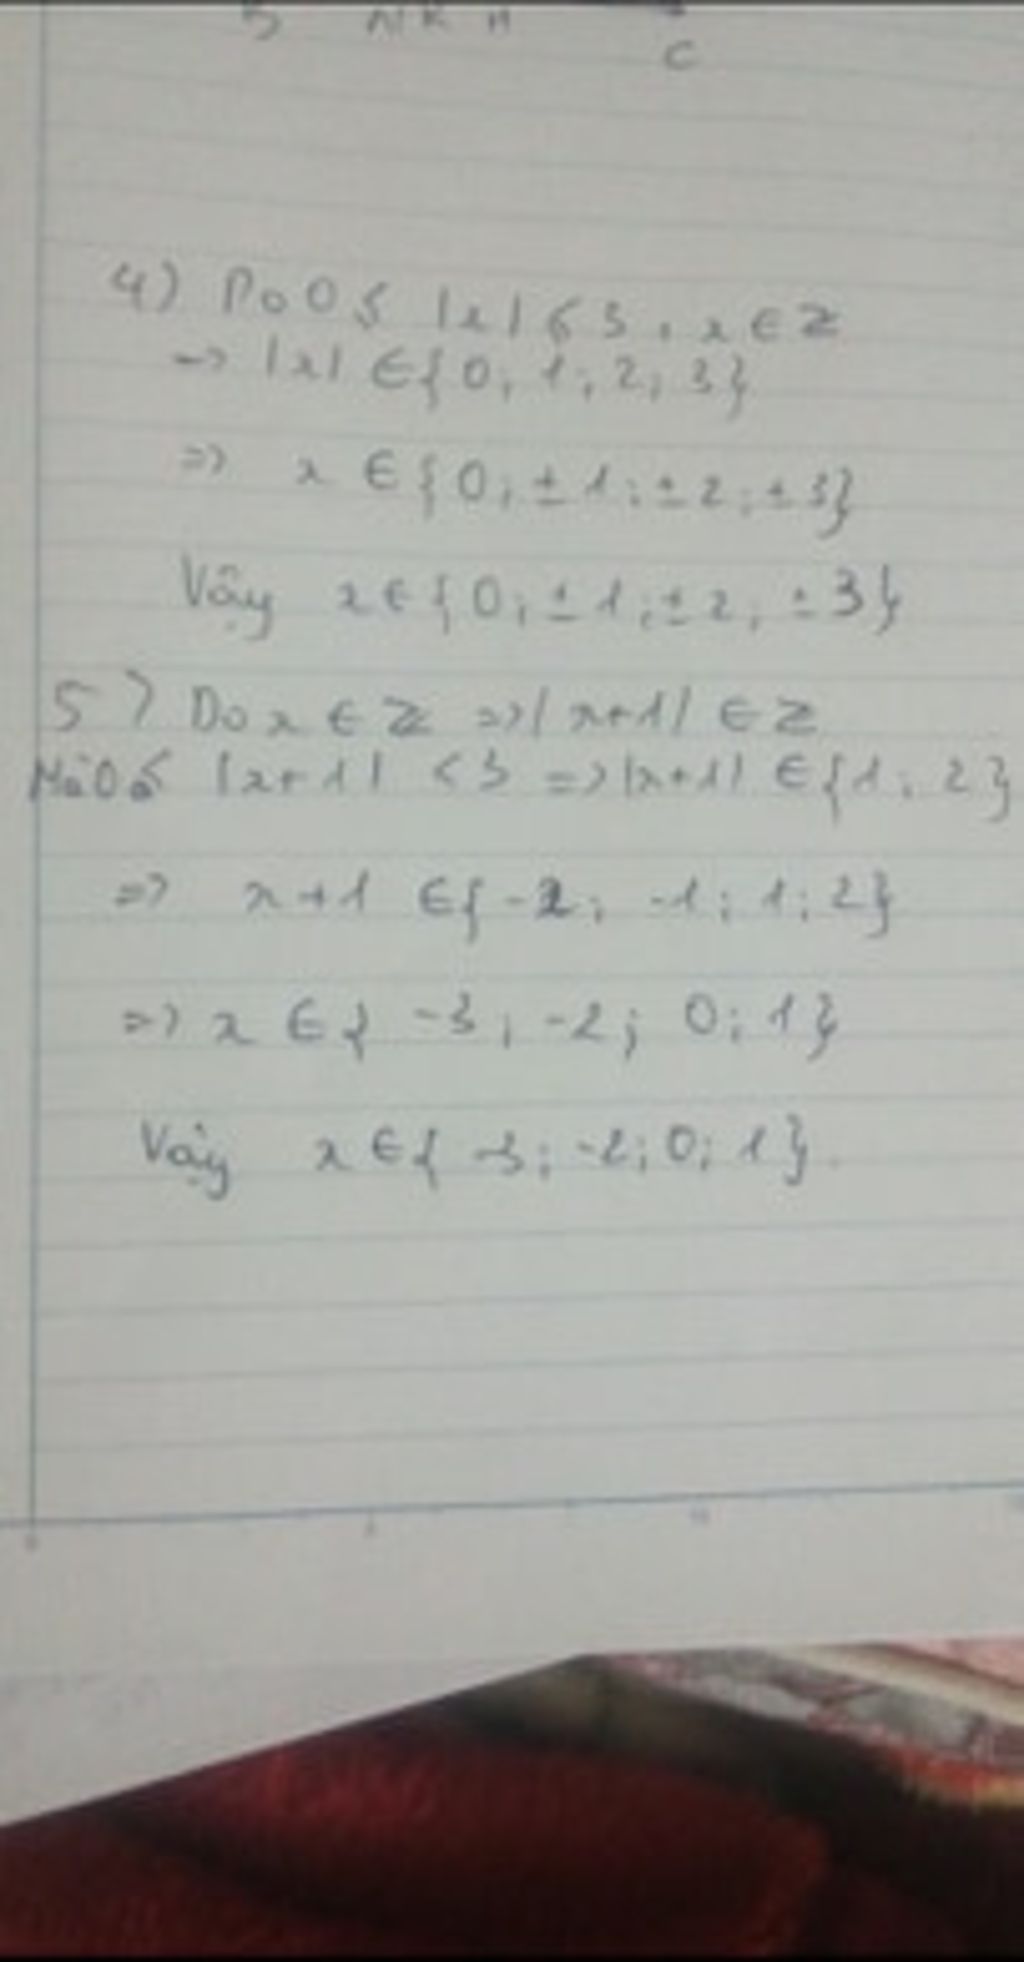 C
4) Do 0 ≤ |x| ≤ 3, x ∈ Z
=> |x| ∈ {0; 1; 2; 3}
=> x ∈ {0; ±1; ±2; ±3}
Vậy x ∈ {0; ±1; ±2; ±3}
5) Do x ∈ Z => |x+1| ∈ Z
Mà 0 ≤ |x+1| < 3 => |x+1| ∈ {1; 2}
=> x+1 ∈ {-2; -1; 1; 2}
=> x ∈ { -3; -2; 0; 1}
Vậy x ∈ { -3; -2; 0; 1}.